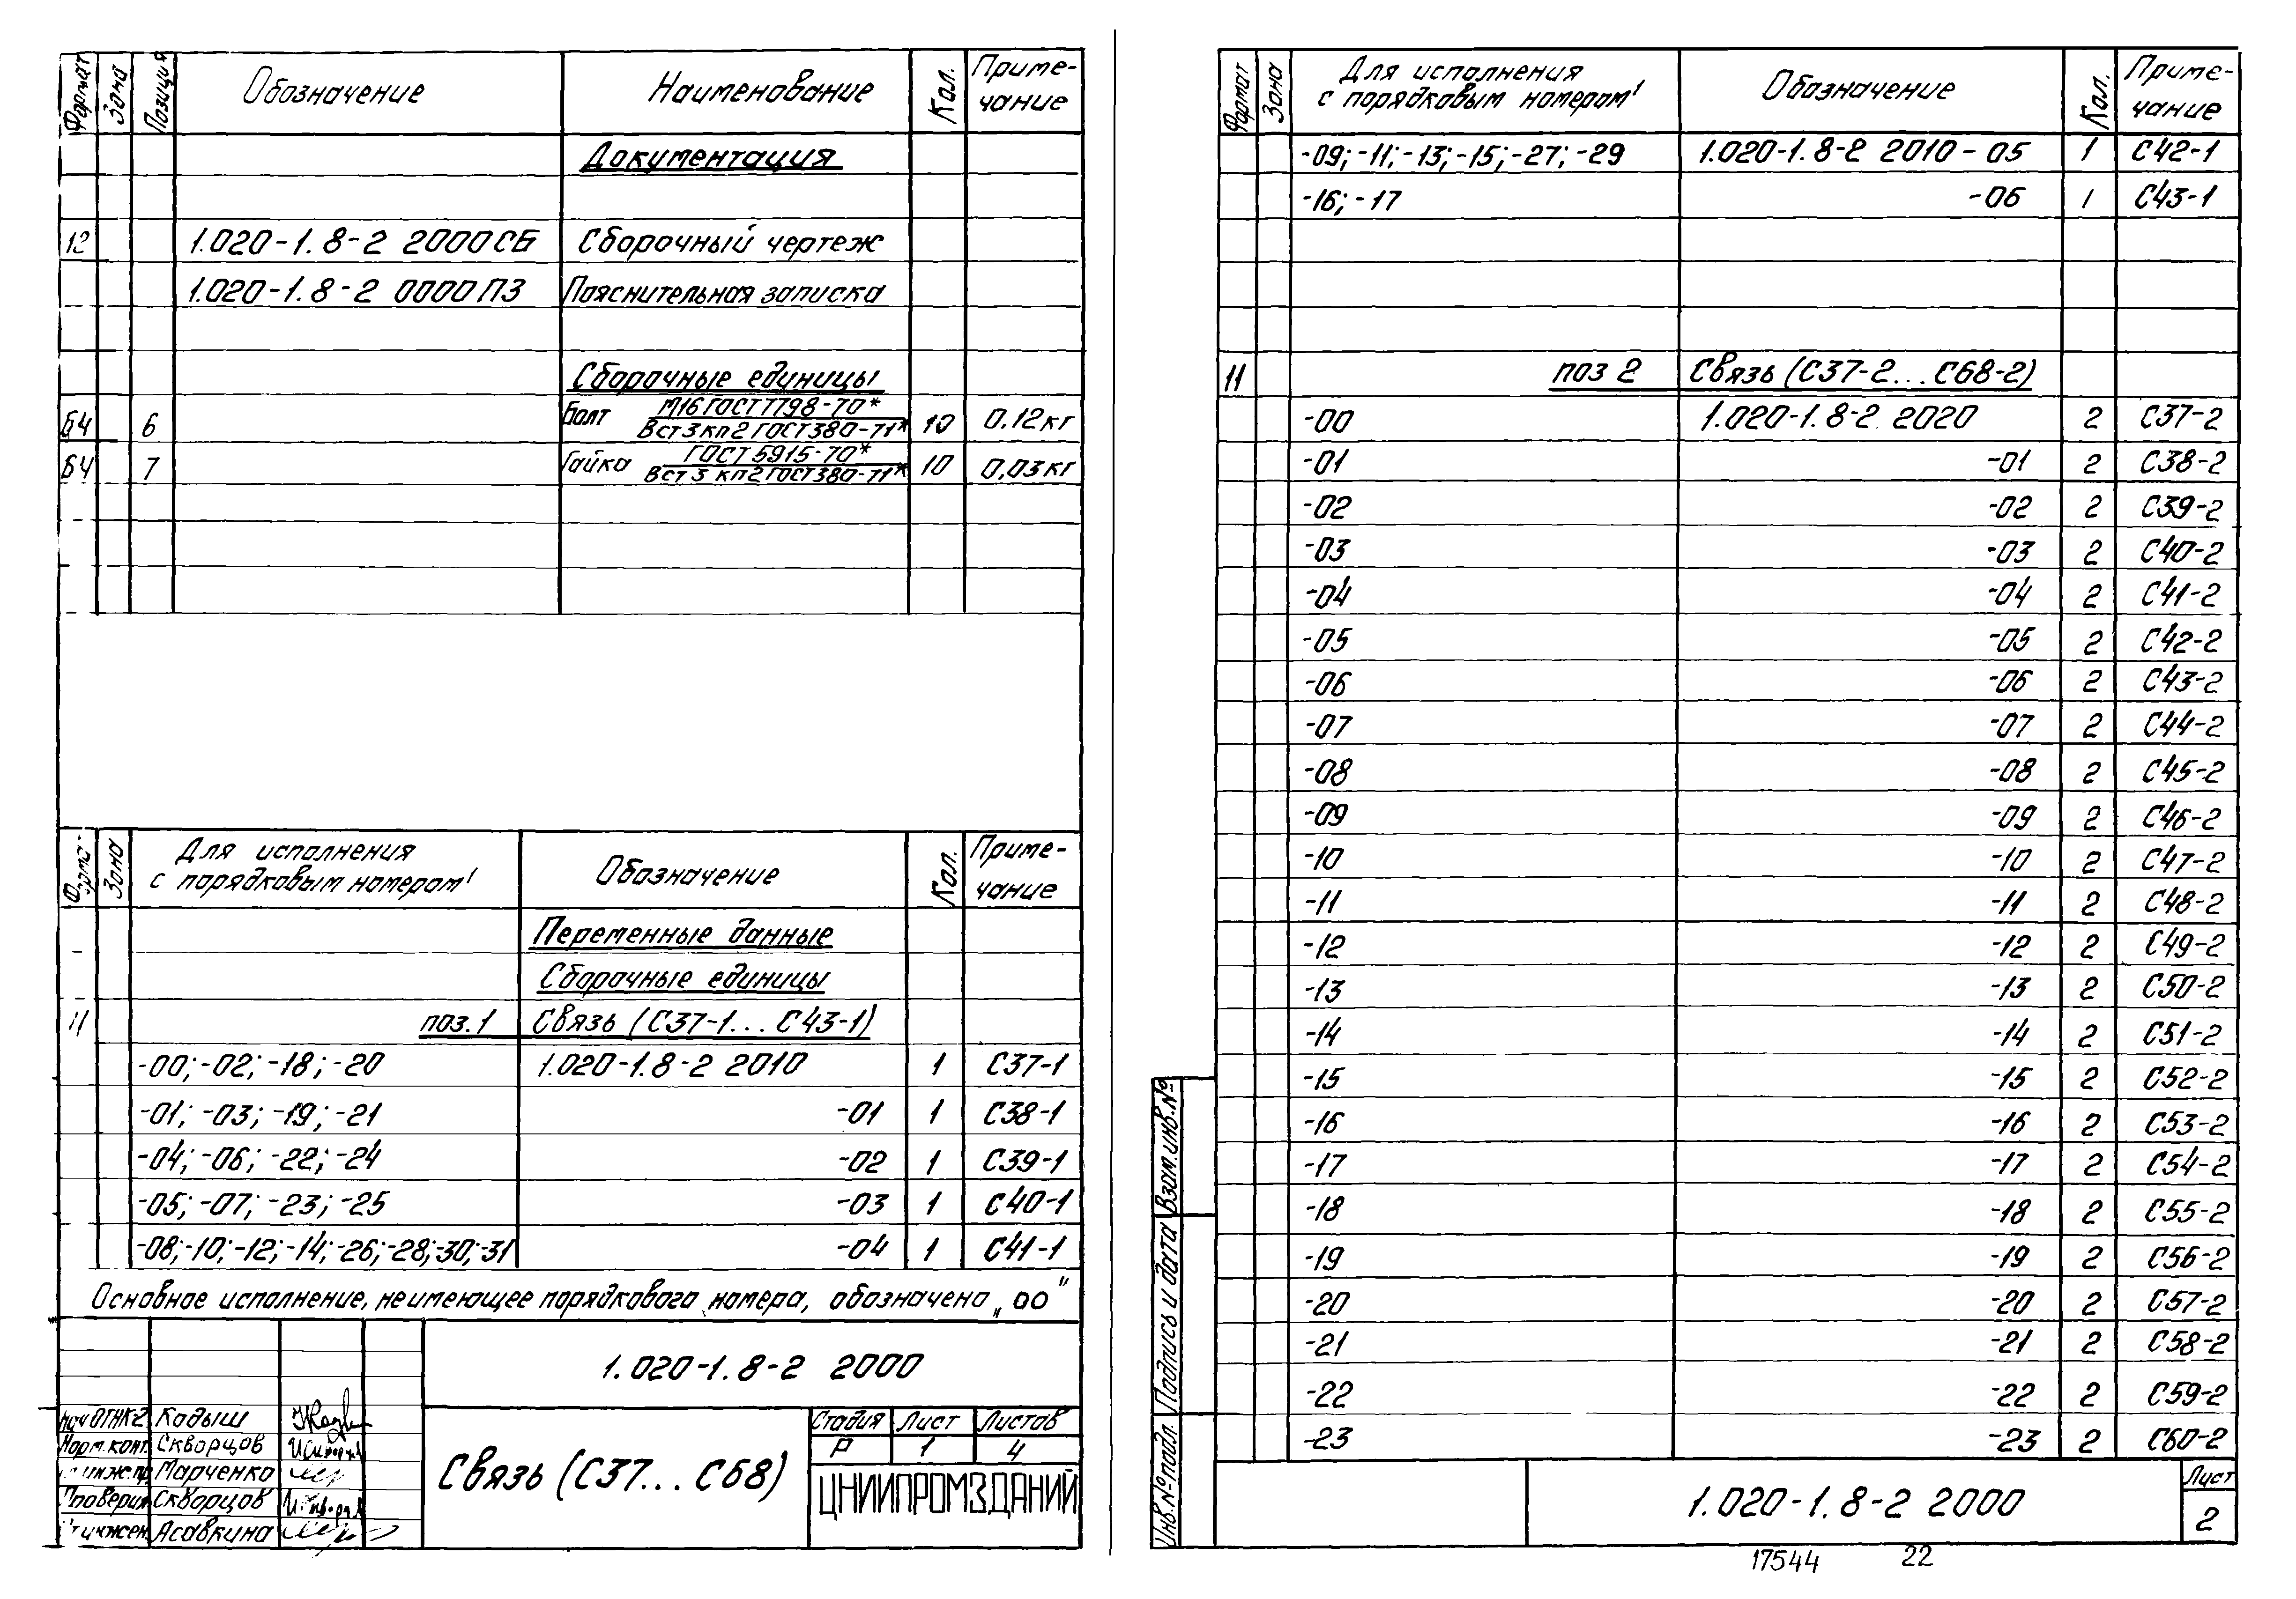 Формат Зона Позиция Обозначение Наименование Кол. Приме-
чание
Документация
12 1.020-1.8-2 2000СБ Сборочный чертеж
1.020-1.8-2 0000ПЗ Пояснительная записка
Сборочные единицы
Б4 6 Болт М16 ГОСТ 7798-70* 10 0.12кг
Вст3кп2 ГОСТ380-71*
Б4 7 Гайка ГОСТ 5915-70* 10 0,03кг
Вст3 кп2 ГОСТ380-71*
Зона Для исполнения
с порядковым номером¹ Обозначение Кол. Приме-
чание
Переменные данные
Сборочные единицы
11 поз.1 Связь (С37-1...С43-1)
-00;-02;-18;-20 1.020-1.8-2 2010 1 С37-1
-01;-03;-19;-21 -01 1 С38-1
-04;-06;-22;-24 -02 1 С39-1
-05;-07;-23;-25 -03 1 С40-1
-08;-10;-12;-14;-26;-28;-30;-31 -04 1 С41-1
Основное исполнение, не имеющее порядкового номера, обозначено „00"
1.020-1.8-2 2000
Нач ОТНК-2 Кадыш
Норм.конт. Скворцов
инж.пр. Марченко
Проверил Скворцов
Ст инжен. Асавкина
Связь (С37...С68)
Стадия Лист Листов
Р 1 4
ЦНИИПРОМЗДАНИЙ
Формат Зона Для исполнения
с порядковым номером¹ Обозначение Кол. Приме-
чание
-09;-11;-13;-15;-27;-29 1.020-1.8-2 2010-05 1 С42-1
-16;-17 -06 1 С43-1
11 поз 2 Связь (С37-2...С68-2)
-00 1.020-1.8-2 2020 2 С37-2
-01 -01 2 С38-2
-02 -02 2 С39-2
-03 -03 2 С40-2
-04 -04 2 С41-2
-05 -05 2 С42-2
-06 -06 2 С43-2
-07 -07 2 С44-2
-08 -08 2 С45-2
-09 -09 2 С46-2
-10 -10 2 С47-2
-11 -11 2 С48-2
-12 -12 2 С49-2
-13 -13 2 С50-2
-14 -14 2 С51-2
-15 -15 2 С52-2
-16 -16 2 С53-2
-17 -17 2 С54-2
-18 -18 2 С55-2
-19 -19 2 С56-2
-20 -20 2 С57-2
-21 -21 2 С58-2
-22 -22 2 С59-2
-23 -23 2 С60-2
Инв.№ подл. Подпись и дата Взам.инв.№
1.020-1.8-2 2000
Лист
2
17544 22